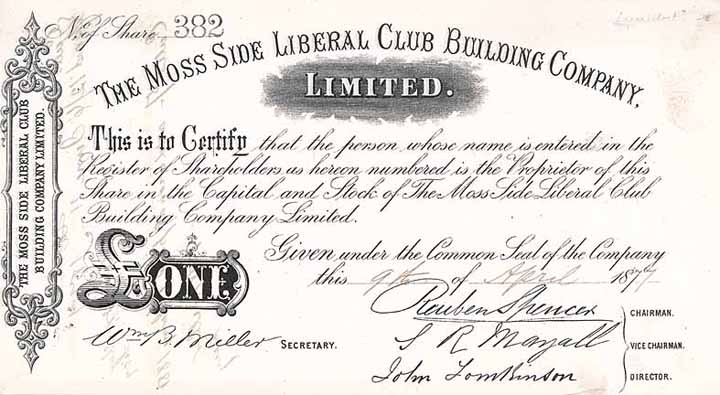 No. of Share 382
THE MOSS SIDE LIBERAL CLUB BUILDING COMPANY,
LIMITED.
This is to Certify that the person whose name is entered in the
Register of Shareholders as hereon numbered is the Proprietor of this
Share in the Capital and Stock of The Moss Side Liberal Club
Building Company Limited.
£ONE
Given under the Common Seal of the Company
this 9th of April 1877
Reuben Spencer CHAIRMAN.
Wm. B. Miller SECRETARY.
S R Mayall VICE CHAIRMAN.
John Tomkinson DIRECTOR.
THE MOSS SIDE LIBERAL CLUB
BUILDING COMPANY LIMITED.